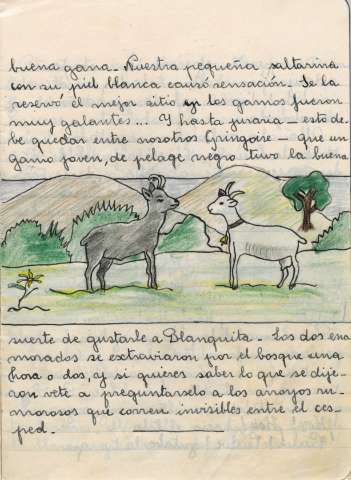 buena gana. Nuestra pequeña saltarina
con su piel blanca causó sensación. Se la
reservó el mejor sitio y los gamos fueron
muy galantes... Y hasta juraria — esto de-
be quedar entre nosotros Gringoire — que un
gamo joven, de pelage negro tuvo la buena
suerte de gustarle a Blanquita. Los dos ena
morados se extraviaron por el bosque una
hora o dos, y si quieres saber lo que se dije-
ron vete a preguntarselo a los arroyos ru-
morosos que corren invisibles entre el cés-
ped.